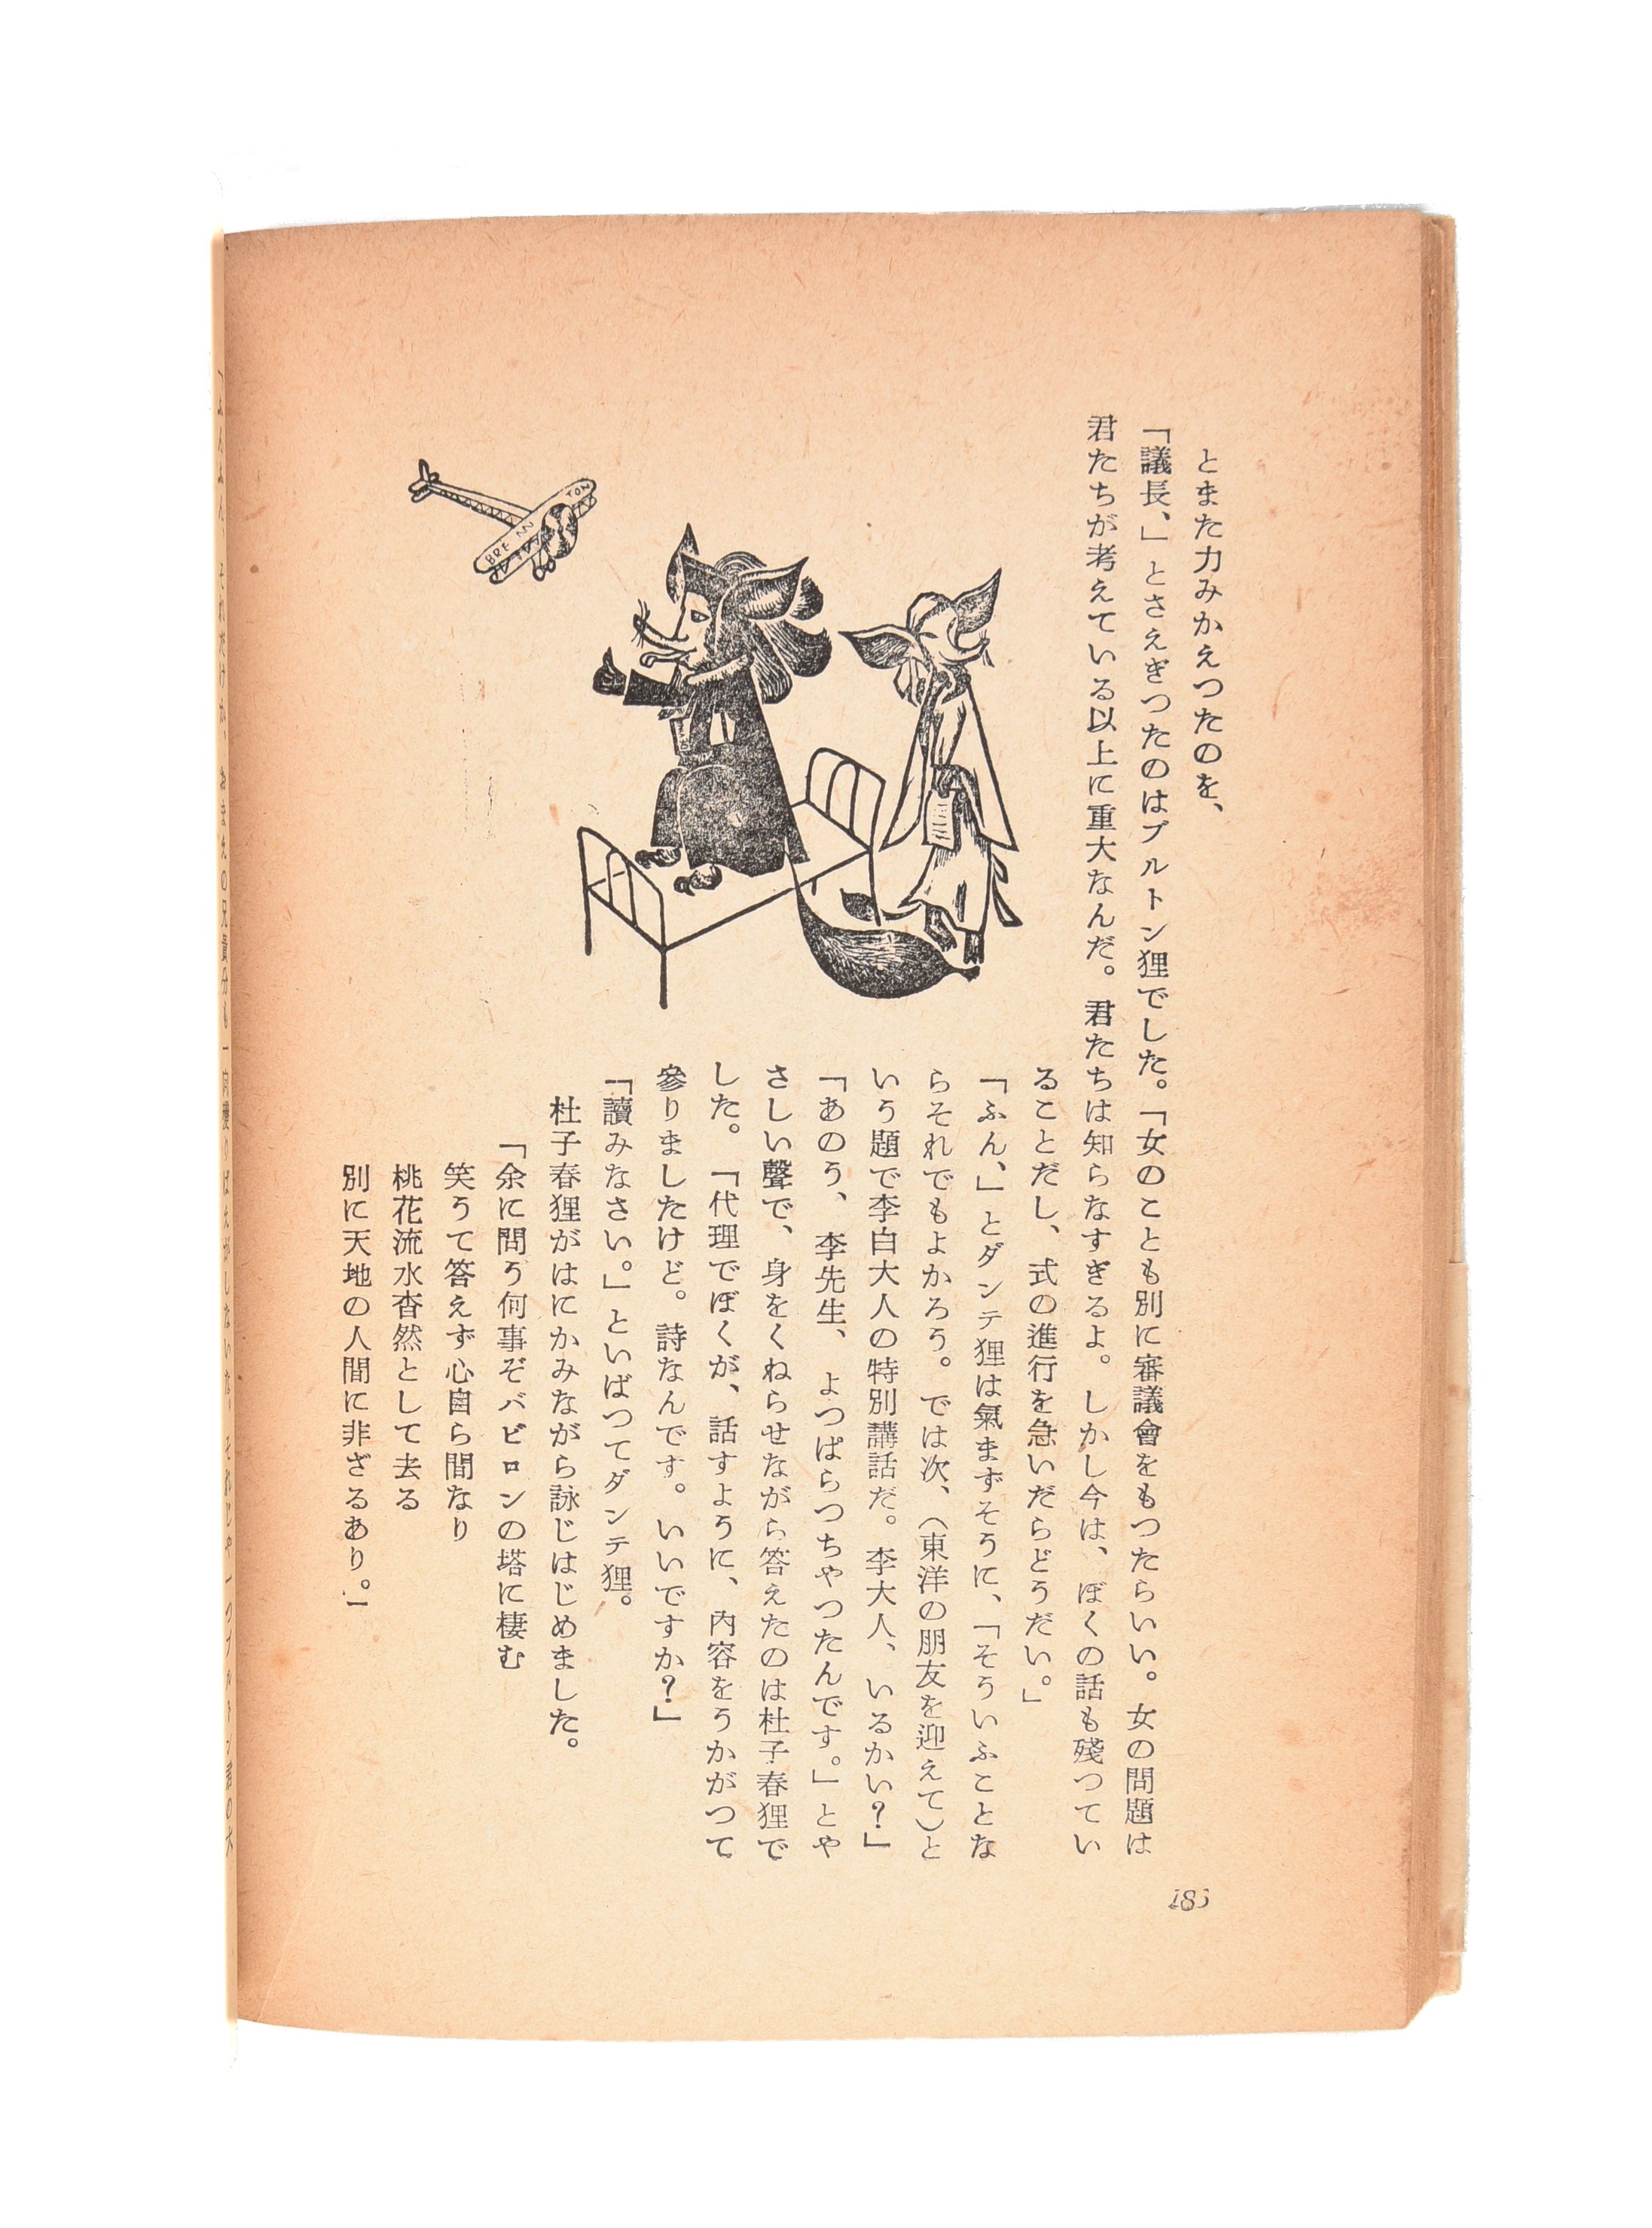 とまた力みかえつたのを、
「議長、」とさえぎつたのはブルトン狸でした。「女のことも別に審議會をもつたらいい。女の問題は
君たちが考えている以上に重大なんだ。君たちは知らなすぎるよ。しかし今は、ぼくの話も殘つてい
ることだし、式の進行を急いだらどうだい。」
「ふん、」とダンテ狸は氣まずそうに、「そういふことな
らそれでもよかろう。では次、（東洋の朋友を迎えて）と
いう題で李白大人の特別講話だ。李大人、いるかい？」
「あのう、李先生、よつぱらつちやつたんです。」とや
さしい聲で、身をくねらせながら答えたのは杜子春狸で
した。「代理でぼくが、話すように、内容をうかがつて
參りましたけど。詩なんです。いいですか？」
「讀みなさい。」といばつてダンテ狸。
杜子春狸がはにかみながら詠じはじめました。
「余に問う何事ぞバビロンの塔に棲む
笑うて答えず心自ら閒なり
桃花流水杳然として去る
別に天地の人間に非ざるあり。」
BRE TON